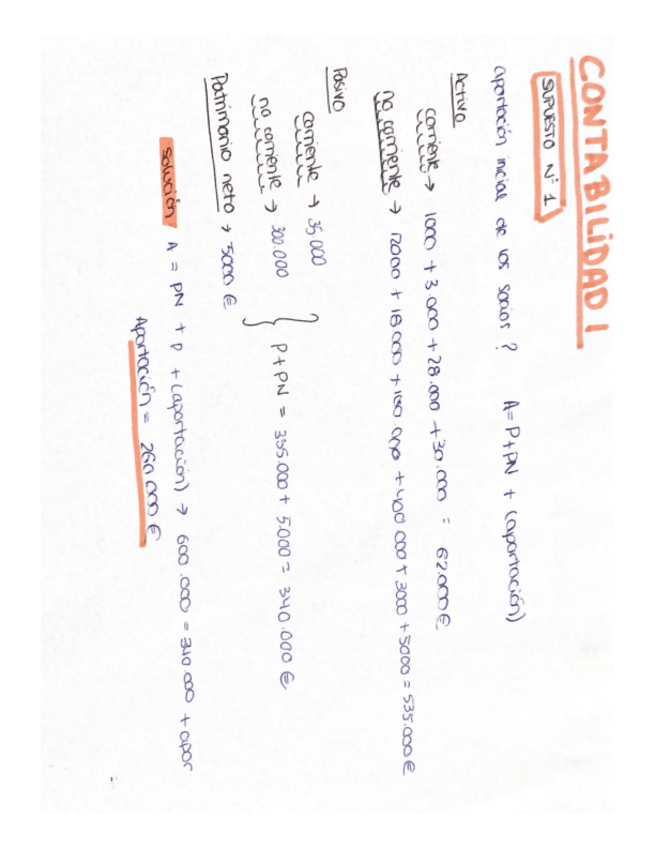 CONTABILIDAD I
SUPUESTO Nº 1
aportación inicial de los socios? A = P+PN + (aportación)
Activo
corriente → 1000 + 3.000 + 28.000 + 30.000 = 62.000€
no corriente → 12000 + 18000 + 100.000 + 400 000 + 3000 + 5000 = 535.000€
Pasivo
corriente → 35.000
no corriente → 300.000
P+PN = 335.000 + 5.000 = 340.000 €
Patrimonio neto → 5000 €
solución A = PN + P + (aportación) → 600.000 = 340.000 + apor
Aportación = 260.000 €